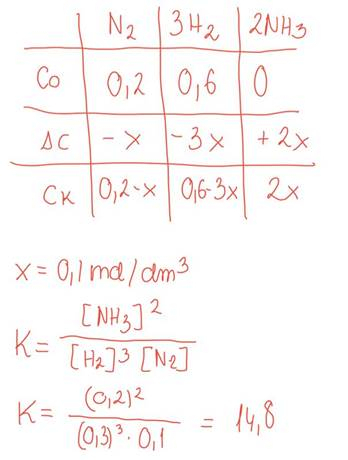 N₂ 3H₂ 2NH₃
C₀ 0,2 0,6 0
ΔC -x -3x +2x
Cₖ 0,2-x 0,6-3x 2x
x = 0,1 mol/dm³
K = [NH₃]² / [H₂]³ [N₂]
K = (0,2)² / (0,3)³ · 0,1 = 14,8